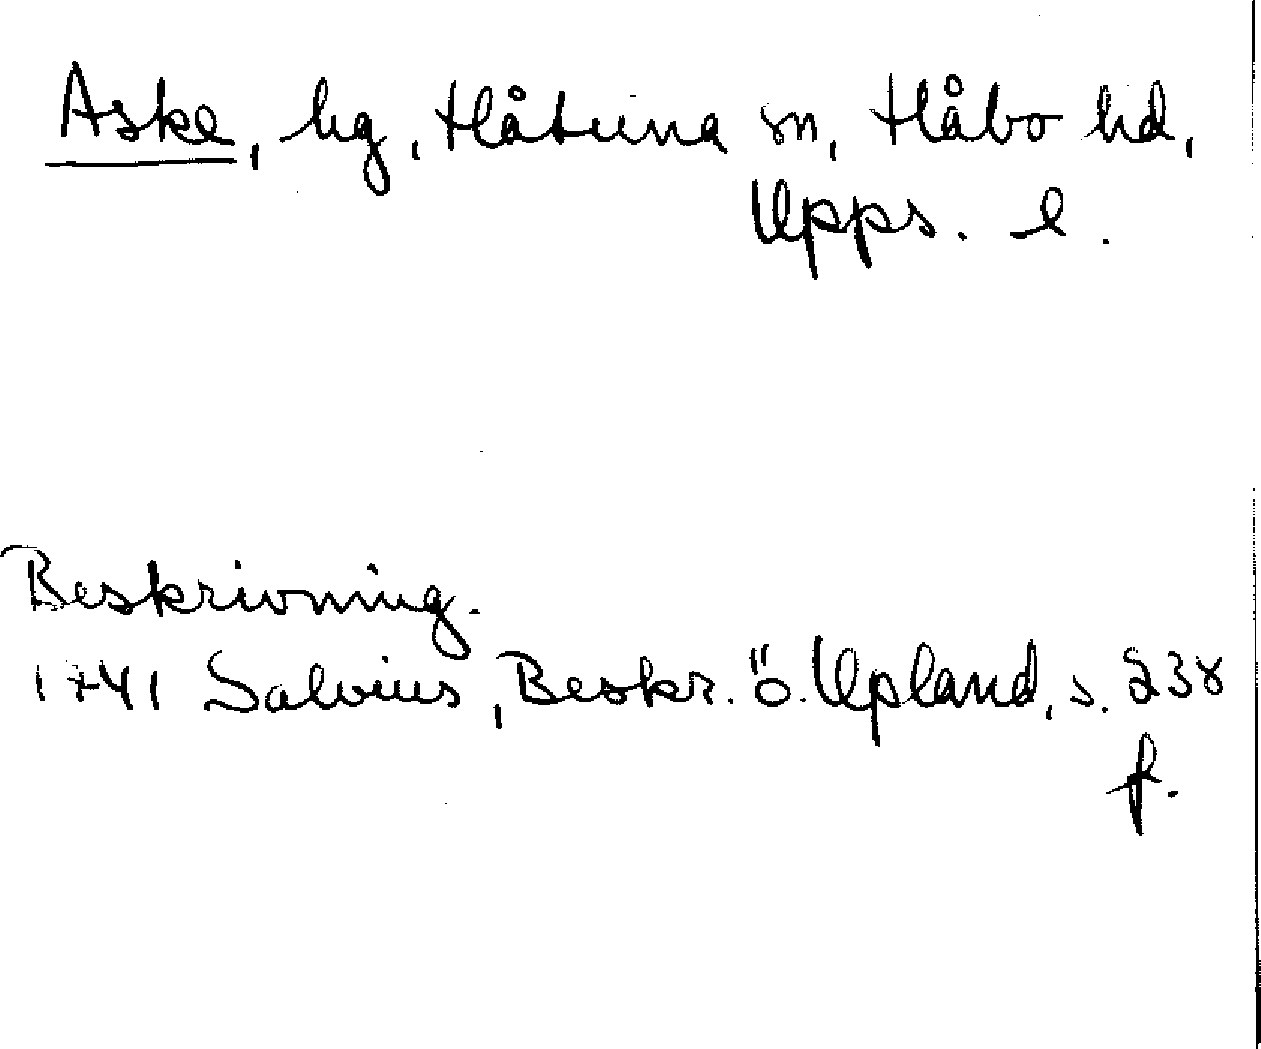 Aske, hg, Håtuna sn, Håbo hd,
Upps. l.
Beskrivning.
1741 Salvius, Beskr. ö. Upland, s. 238
f.